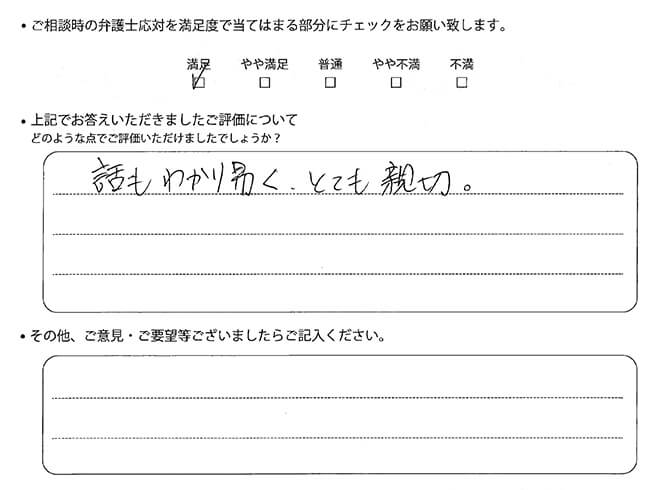 ・ご相談時の弁護士応対を満足度で当てはまる部分にチェックをお願い致します。
満足 やや満足 普通 やや不満 不満
・上記でお答えいただきましたご評価について
どのような点でご評価いただけましたでしょうか？
話もわかり易く、とても親切。
・その他、ご意見・ご要望等ございましたらご記入ください。